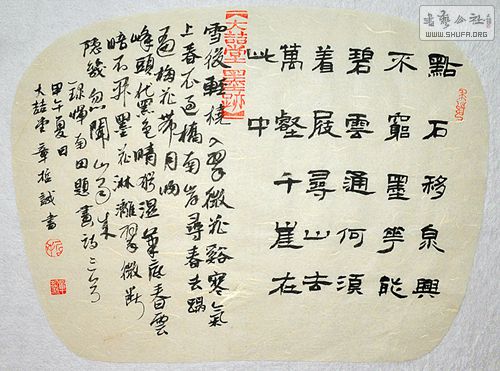 書藝公社
WWW.SHUFA.ORG
【大喆堂 墨跡】
點石移泉興
不窮墨華能
碧雲通何須
着屐尋山去
萬壑千崖在
此中
雪後輕橈入翠微花谿寒氣
上春衣過橋南岸尋春去踏
遍梅花帶月歸
峰頭黛色晴猶濕筆底春雲
暗不開墨花淋灕翠微斷
隱幾忽聞山雨來
録惲南田題畫詩三首
甲午夏日
大喆堂章哲誠書